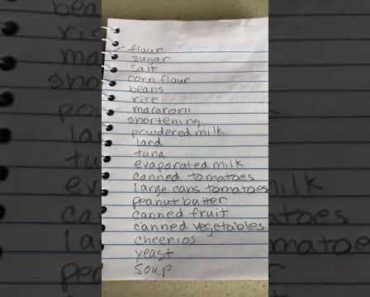 flour
sugar
salt
corn flour
beans
rice
macaroni
shortening
powdered milk
lard
tuna
evaporated milk
canned tomatoes
large cans tomatoes
peanut butter
canned fruit
canned vegetables
cheerios
yeast
soup